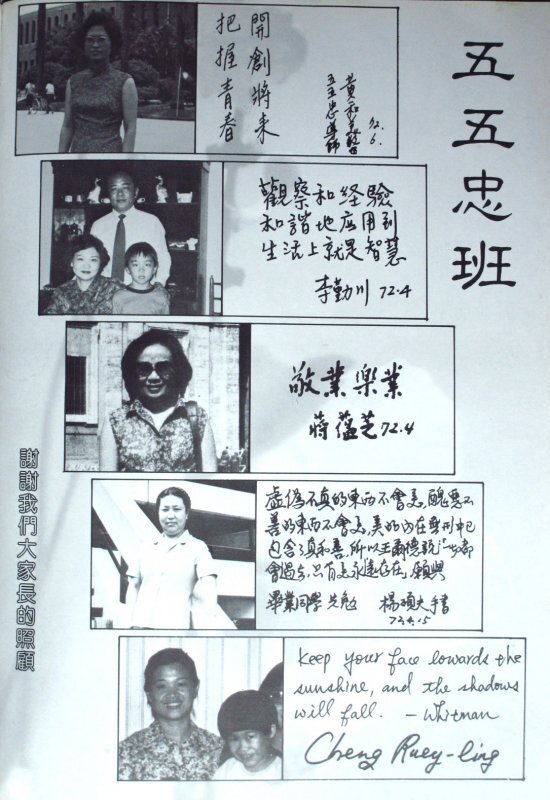 五五忠班
開創將来
把握青春
五五忠導師
72.
6.
觀察和経驗
和諧地应用到
生活上就是智慧
李勤川 72.4
敬業樂業
蔣蘊芝 72.4
虛偽不真的東西不會美,醜惡不
善的東西不會美,美的內在雙刑中已
包含了真和善,所以王爾德說「一切都
會過去,只有美永遠存在」願與
畢業同學共勉 楊碩夫手書
72.4.15
keep your face towards the
sunshine, and the shadows
will fall. — Whitman
Cheng Ruey-ling
謝謝我們大家長的照顧